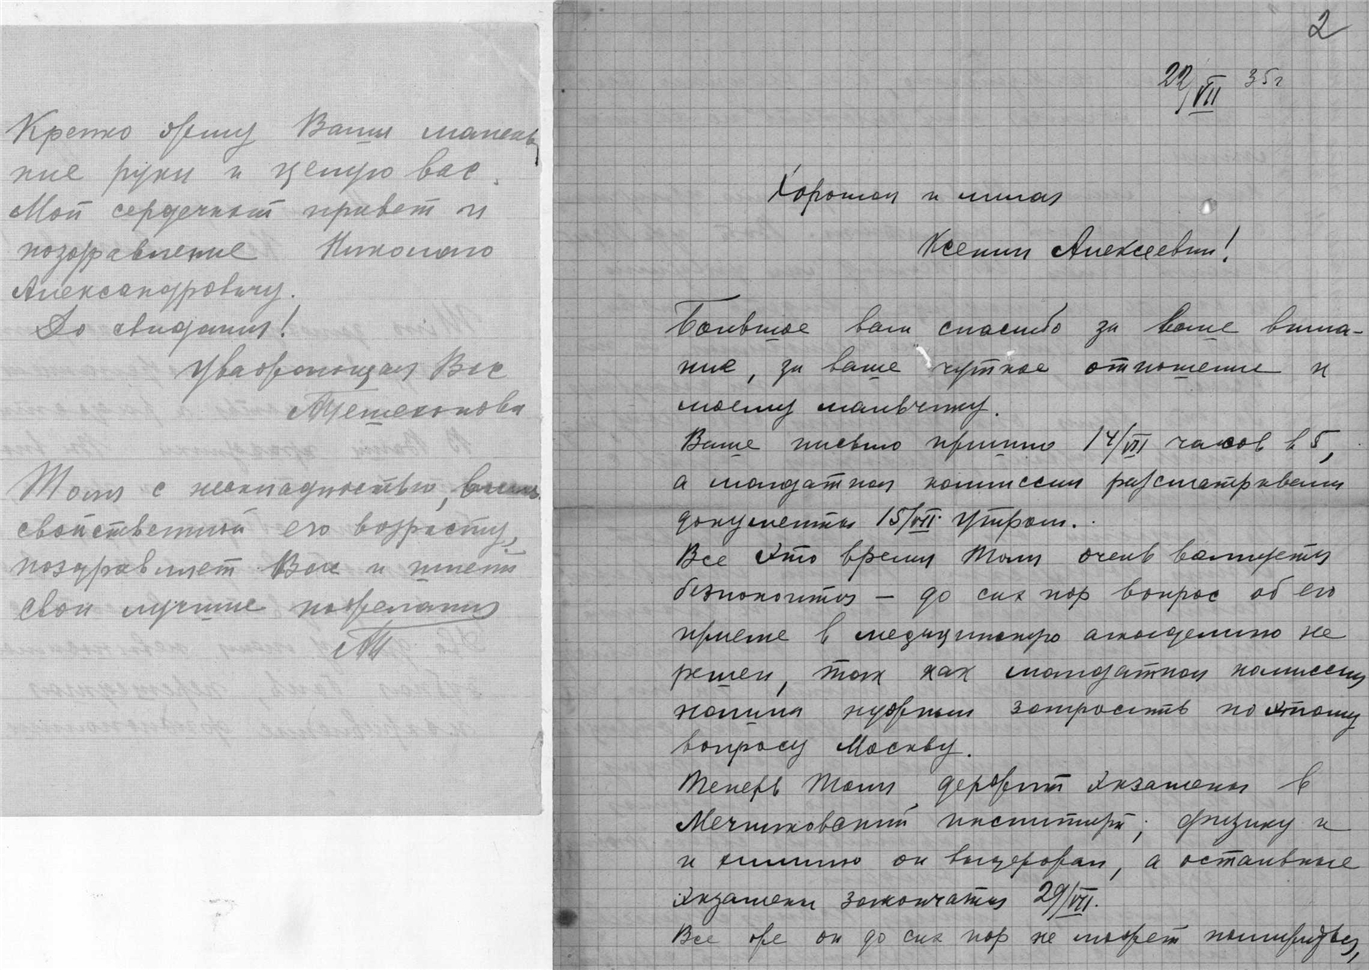 Крепко жму Ваши малень
кие руки и целую вас.
Мой сердечный привет и
поздравление Николаю
Александровичу.
До свидания!
Уважающая Вас
Мешеконова
Толя с неокладностью,
свойственной его возрасту,
поздравляет Вас и шлет
свои лучшие пожелания
М
2
22/VII 35г
Хорошая и милая
Ксения Алексеевна!
Большое вам спасибо за ваше внима-
ние, за ваше чуткое отношение к
моему мальчику.
Ваше письмо пришло 14/VII часов в 5,
а мандатная комиссия рассматривала
документы 15/VII утром.
Все это время Толя очень волнуется
безпокоится — до сих пор вопрос об его
приеме в медицинскую академию не
решен, так как мандатная комиссия
нашла нужным запросить по этому
вопросу Москву.
Теперь Толя держит экзамены в
Мечниковский институт; физику и
и химию он выдержал, а остальные
экзамены закончатся 29/VII.
Все же он до сих пор не может помириться,